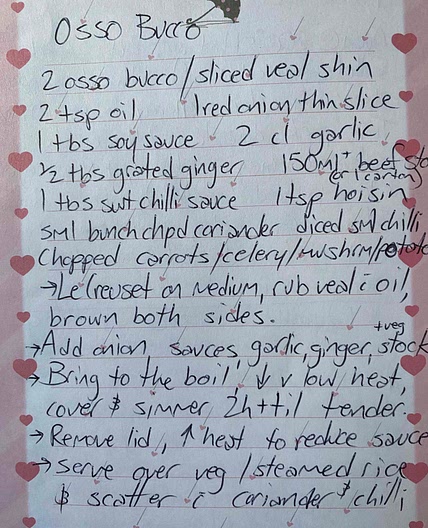 Osso Bucco
2 osso bucco/sliced veal shin
2 tsp oil 1 red onion thin slice
1 tbs soy sauce 2 cl garlic
½ tbs grated ginger 150ml+ beef sto
(or 1 carton)
1 tbs swt chilli sauce 1 tsp hoisin
sml bunch chpd coriander diced sml chilli
Chopped carrots/celery/mushrm/potato
→Le Creuset on medium, rub veal c̄ oil,
brown both sides.
+veg
→Add onion, sauces, garlic, ginger, stock
→Bring to the boil, ↓ v low heat,
cover & simmer 2h++ til tender.
→Remove lid, ↑ heat to reduce sauce
→Serve over veg/steamed rice
& scatter c̄ coriander & chilli